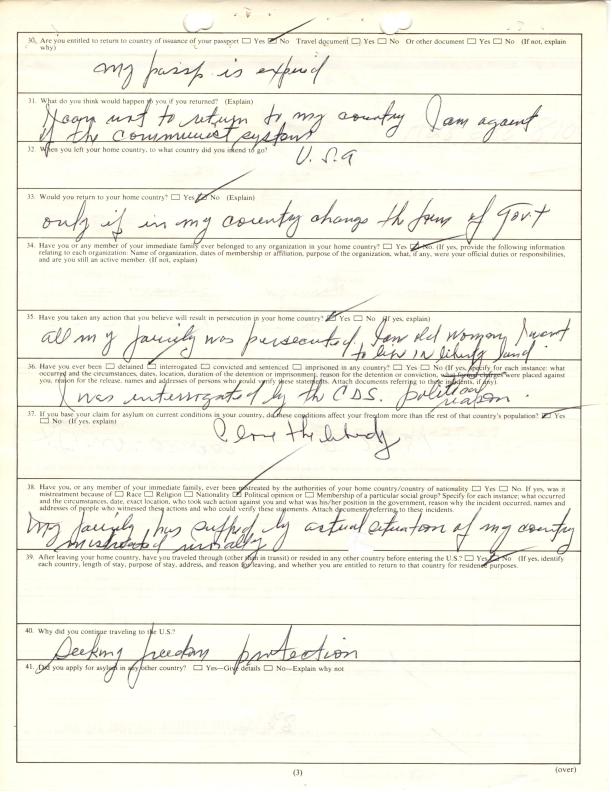 30. Are you entitled to return to country of issuance of your passport ☐ Yes ☑ No Travel document ☐ Yes ☐ No Or other document ☐ Yes ☐ No (If not, explain
why)
my passp is expired
31. What do you think would happen to you if you returned? (Explain)
I can not to return to my country I am against
of the communist system
32. When you left your home country, to what country did you intend to go?
U.S.A
33. Would you return to your home country? ☐ Yes ☑ No (Explain)
only if in my country change the form of Gov't
34. Have you or any member of your immediate family ever belonged to any organization in your home country? ☐ Yes ☑ No. (If yes, provide the following information
relating to each organization: Name of organization, dates of membership or affiliation, purpose of the organization, what, if any, were your official duties or responsibilities,
and are you still an active member. (If not, explain)
35. Have you taken any action that you believe will result in persecution in your home country? ☑ Yes ☐ No (If yes, explain)
all my family was persecuted. I am old woman I want
to live in liberty land
36. Have you ever been ☐ detained ☑ interrogated ☐ convicted and sentenced ☐ imprisoned in any country? ☐ Yes ☐ No (If yes, specify for each instance: what
occurred and the circumstances, dates, location, duration of the detention or imprisonment, reason for the detention or conviction, what formal charges were placed against
you, reason for the release, names and addresses of persons who could verify these statements. Attach documents referring to these incidents, if any).
I was interrogated by the CDS. political
reason.
37. If you base your claim for asylum on current conditions in your country, do these conditions affect your freedom more than the rest of that country's population? ☑ Yes
☐ No (If yes, explain)
I love the
38. Have you, or any member of your immediate family, ever been mistreated by the authorities of your home country/country of nationality ☐ Yes ☐ No. If yes, was it
mistreatment because of ☐ Race ☐ Religion ☐ Nationality ☑ Political opinion or ☐ Membership of a particular social group? Specify for each instance; what occurred
and the circumstances, date, exact location, who took such action against you and what was his/her position in the government, reason why the incident occurred, names and
addresses of people who witnessed these actions and who could verify these statements. Attach documents referring to these incidents.
My family has suffed by actual situation of my country
mistreated
39. After leaving your home country, have you traveled through (other than in transit) or resided in any other country before entering the U.S.? ☐ Yes ☑ No (If yes, identify
each country, length of stay, purpose of stay, address, and reason for leaving, and whether you are entitled to return to that country for residence purposes.
40. Why did you continue traveling to the U.S.?
Seeking freedom protection
41. Did you apply for asylum in any other country? ☐ Yes—Give details ☐ No—Explain why not
(3)
(over)